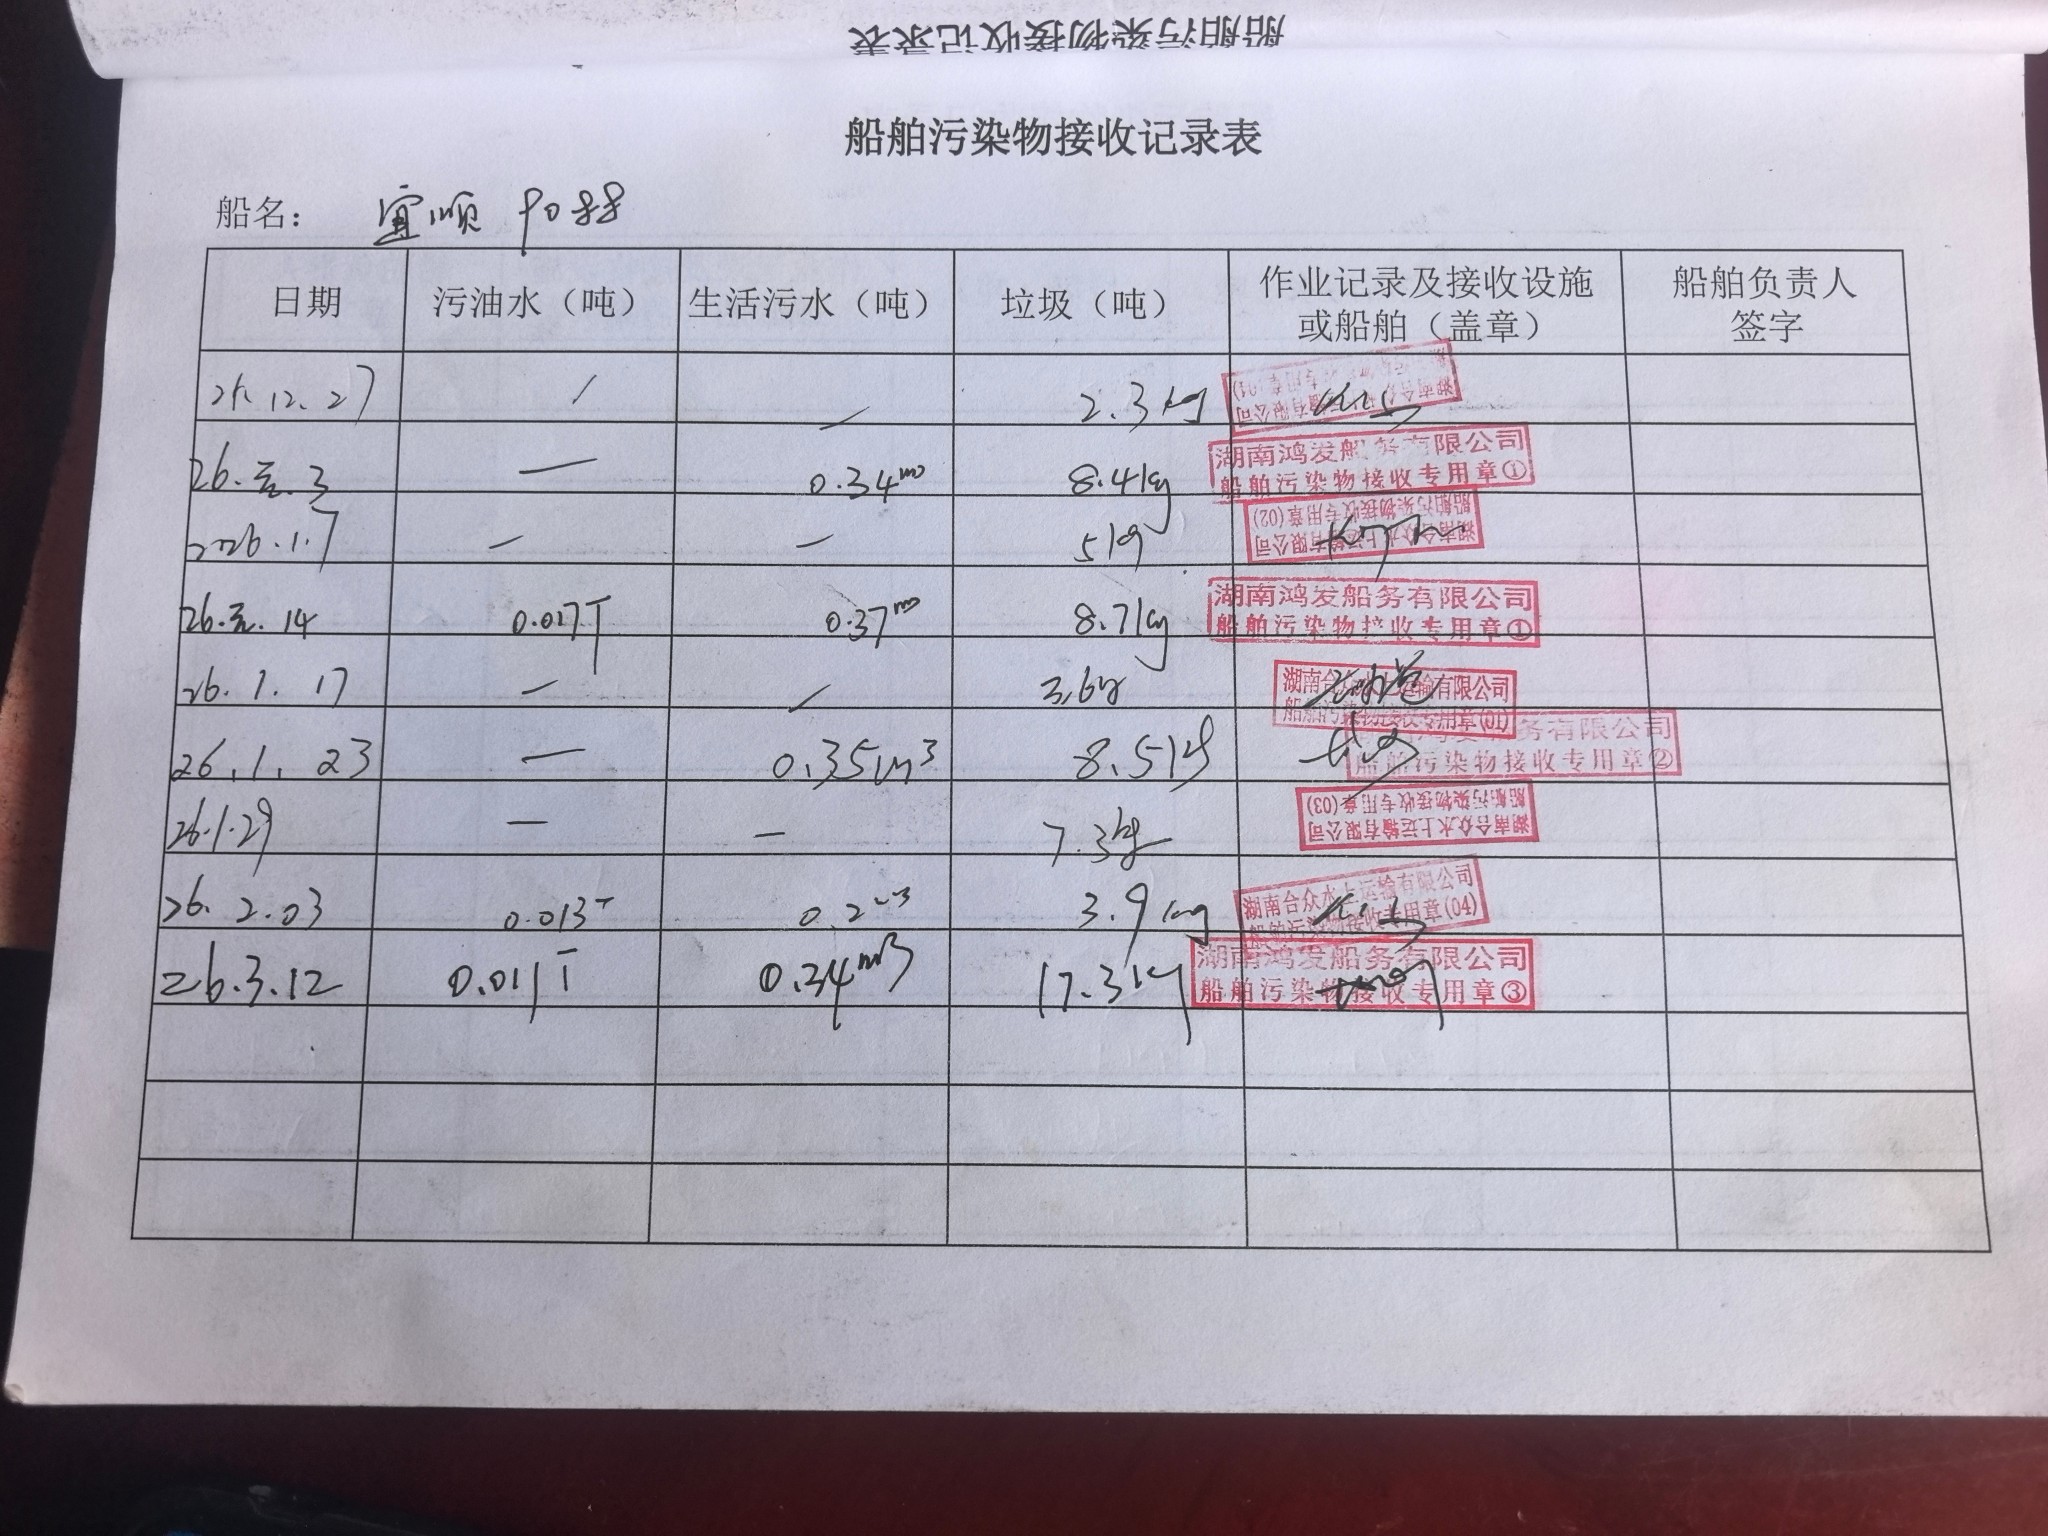 船舶污染物接收记录表
船舶污染物接收记录表
船名： 宜顺 9088
日期 污油水（吨） 生活污水（吨） 垃圾（吨） 作业记录及接收设施或船舶（盖章） 船舶负责人签字
25.12.27 / — 2.3kg
26.元.3 — 0.34m 8.4kg 湖南鸿发船务有限公司
船舶污染物接收专用章①
2026.1.7 — — 5kg 湖南合众水上运输有限公司
船舶污染物接收专用章(02)
26.元.14 0.017T 0.37m 8.7kg 湖南鸿发船务有限公司
船舶污染物接收专用章①
26.1.17 — / 3.6kg 湖南合众水上运输有限公司
船舶污染物接收专用章(01)
26.1.23 — 0.35m3 8.5kg 务有限公司
船舶污染物接收专用章②
26.1.29 — — 7.3kg 湖南合众水上运输有限公司
船舶污染物接收专用章(03)
26.2.03 0.013T 0.2m3 3.9kg 湖南合众水上运输有限公司
船舶污染物接收专用章(04)
26.3.12 0.011T 0.34m3 17.3kg 湖南鸿发船务有限公司
船舶污染物接收专用章③